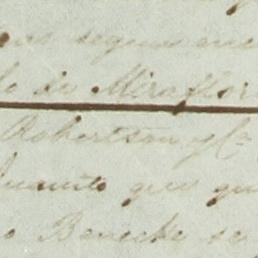 segun
de Miraflor
Robertson y Ca
Cuanto que qu
o Benecke se